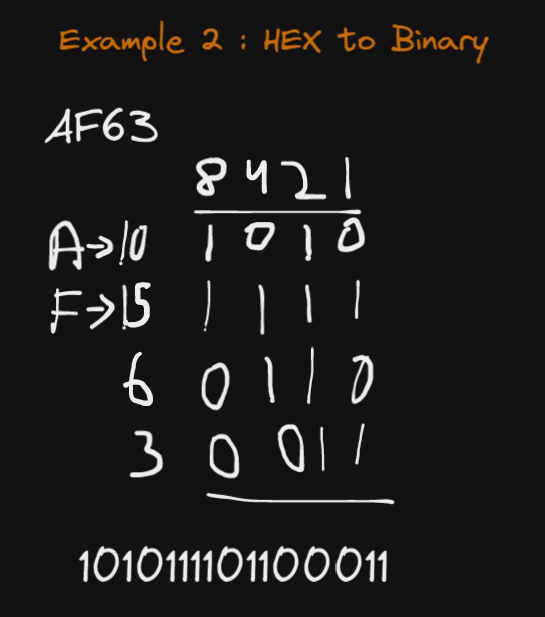 Example 2 : HEX to Binary
AF63
8 4 2 1
A→10 1 0 1 0
F→15 1 1 1 1
6 0 1 1 0
3 0 0 1 1
1010111101100011